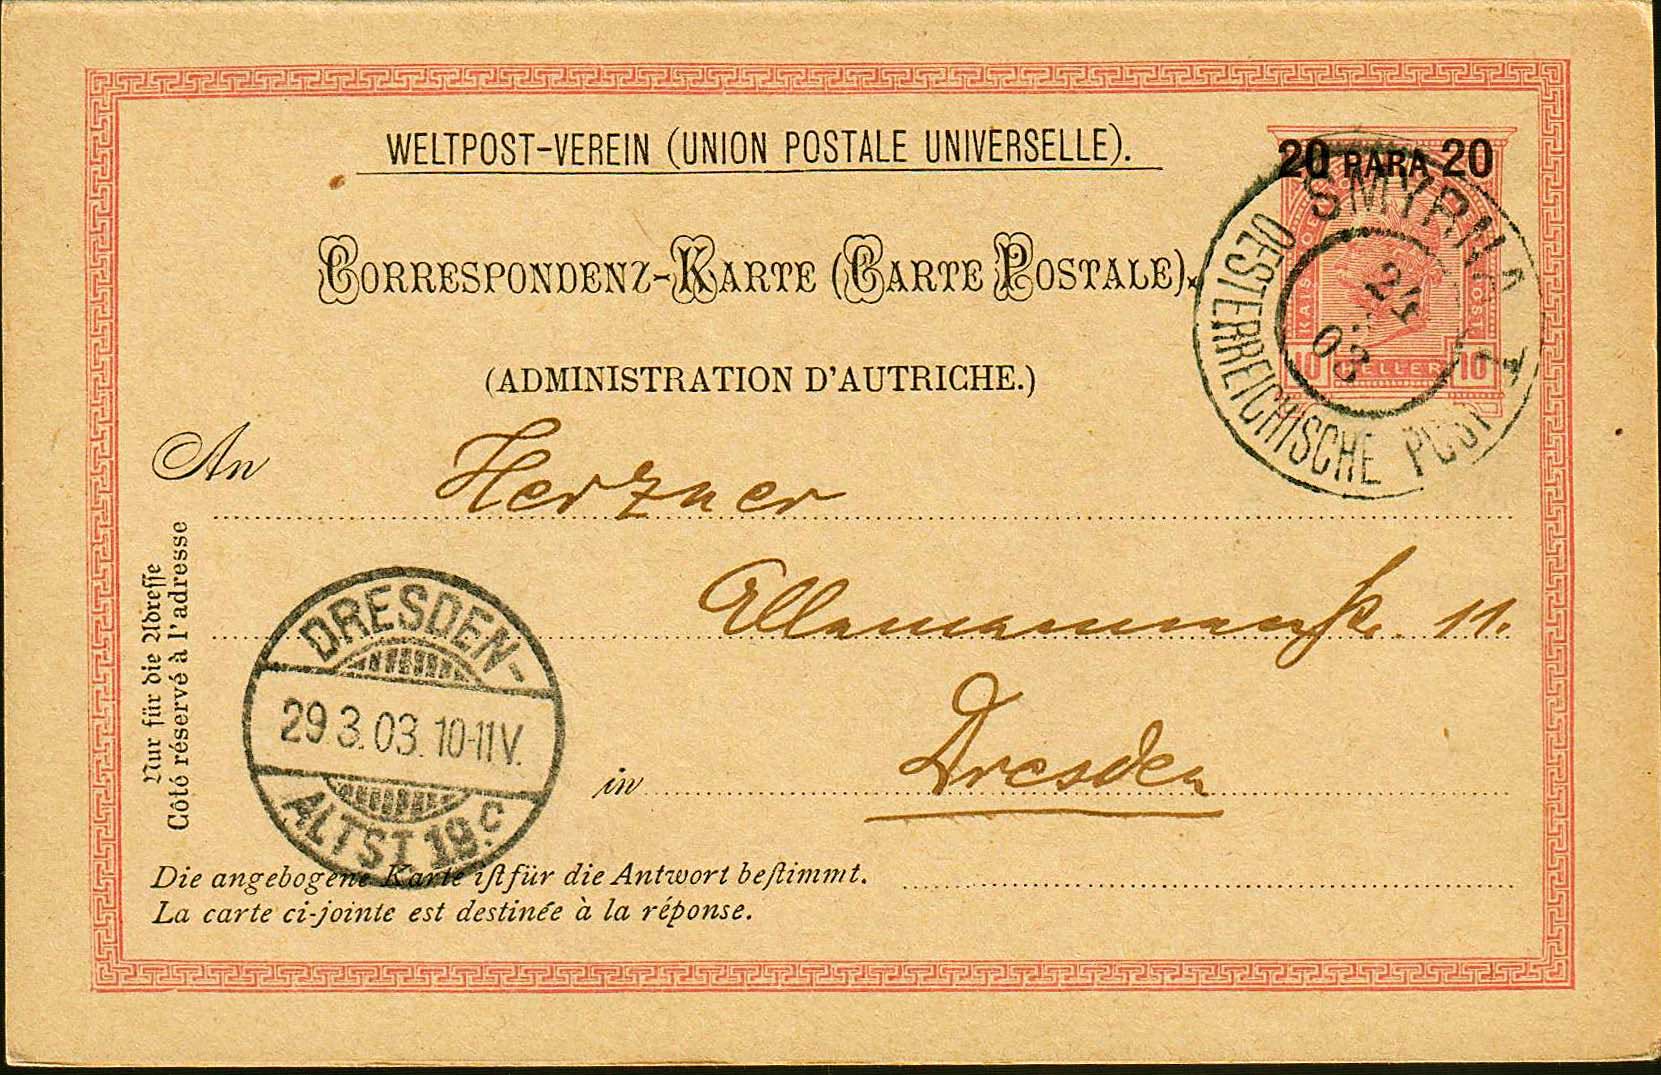 WELTPOST-VEREIN (UNION POSTALE UNIVERSELLE).
20 PARA 20
CORRESPONDENZ-KARTE (CARTE POSTALE).
(ADMINISTRATION D'AUTRICHE.)
10 HELLER 10
SMYRNA
OESTERREICHISCHE POST
24
03
An
Herzner
Allemannenstr. 11.
in Dresden
Nur für die Adresse
Côté réservé à l'adresse
DRESDEN-
29.3.03. 10-11V.
ALTST. 19.c
Die angebogene Karte ist für die Antwort bestimmt.
La carte ci-jointe est destinée à la réponse.